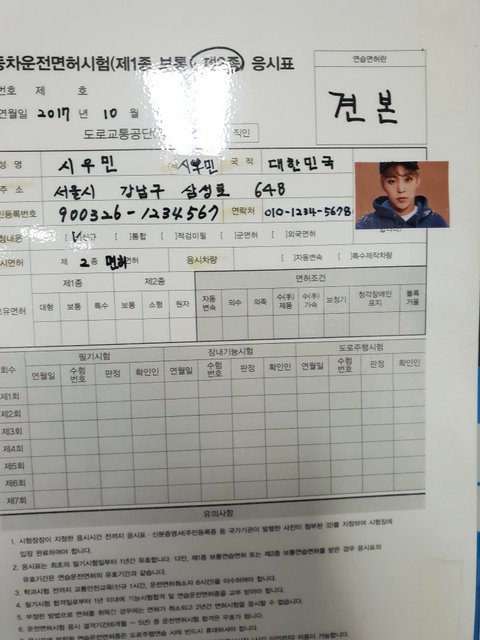 동차운전면허시험(제1종 보통 제2종) 응시표
번호 제 호
연월일 2017 년 10 월
도로교통공단 직인
연습면허란
견본
성 명 시우민 시우민 국 적 대한민국
주 소 서울시 강남구 삼성로 648
민등록번호 900326-1234567 연락처 010-1234-5678
험내용 [V]신규 [ ]통합 [ ]적검미필 [ ]군면허 [ ]외국면허
시면허 제 2 종 면허 면허 응시차량 [ ]자동변속 [ ]특수제작차량
유면허 제1종 제2종 면허조건
대형 보통 특수 보통 소형 원자 자동변속 의수 의족 수(手)제동 수(手)가속 보청기 청각장애인표지 볼록거울
회수 필기시험 장내기능시험 도로주행시험
연월일 수험번호 판정 확인인 연월일 수험번호 판정 확인인 연월일 수험번호 판정 확인인
제1회
제2회
제3회
제4회
제5회
제6회
제7회
유의사항
1. 시험장장이 지정한 응시시간 전까지 응시표 · 신분증명서(주민등록증 등 국가기관이 발행한 사진이 첨부된 것)을 지참하여 시험장에
입장 완료하여야 합니다.
2. 응시표는 최초의 필기시험일부터 1년간 유효합니다. 다만, 제1종 보통연습면허 또는 제2종 보통연습면허를 받은 경우 응시표의
유효기간은 연습운전면허의 유효기간과 같습니다.
3. 학과시험 전까지 교통안전교육(신규 1시간, 운전면허취소자 6시간)을 이수하여야 합니다.
4. 필기시험 합격일로부터 1년 이내에 기능시험합격 및 연습면허증을 교부 받아야 합니다.
5. 부정한 방법으로 면허를 취득한 경우에는 면허가 취소되고 2년간 면허시험을 응시할 수 없습니다.
6. 운전면허시험 응시 결격기간(6개월 ~ 5년) 중 운전면허시험 합격은 무효가 됩니다.